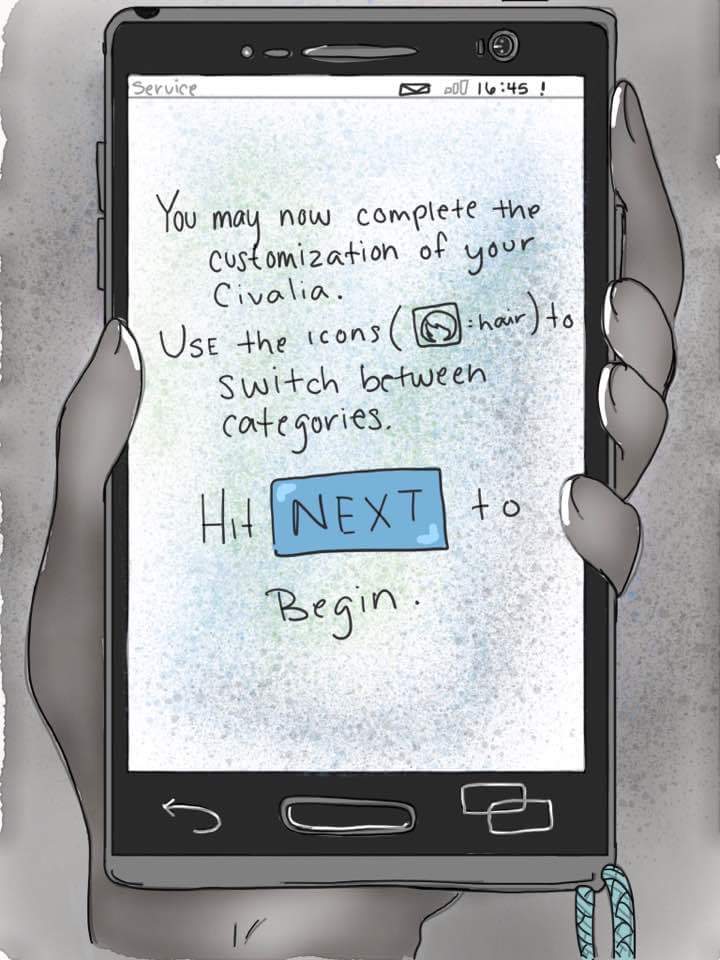 Service 16:45 !
You may now complete the
customization of your
Civalia.
USE the icons ( :hair) to
switch between
categories.
Hit NEXT to
Begin.